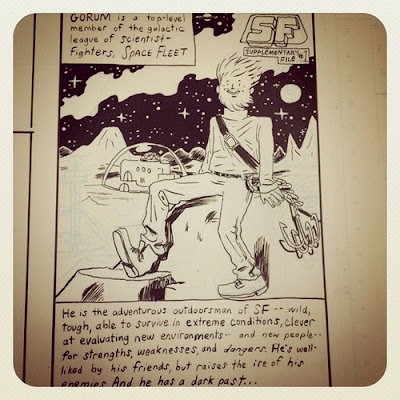 GORUM is a top-level
member of the galactic
league of scientist-
fighters, SPACE FLEET
SF
SUPPLEMENTARY
FILE #1
He is the adventurous outdoorsman of SF -- wild,
tough, able to survive in extreme conditions, clever
at evaluating new environments -- and new people --
for strengths, weaknesses, and dangers. He's well-
liked by his friends, but raises the ire of his
enemies. And he has a dark past...